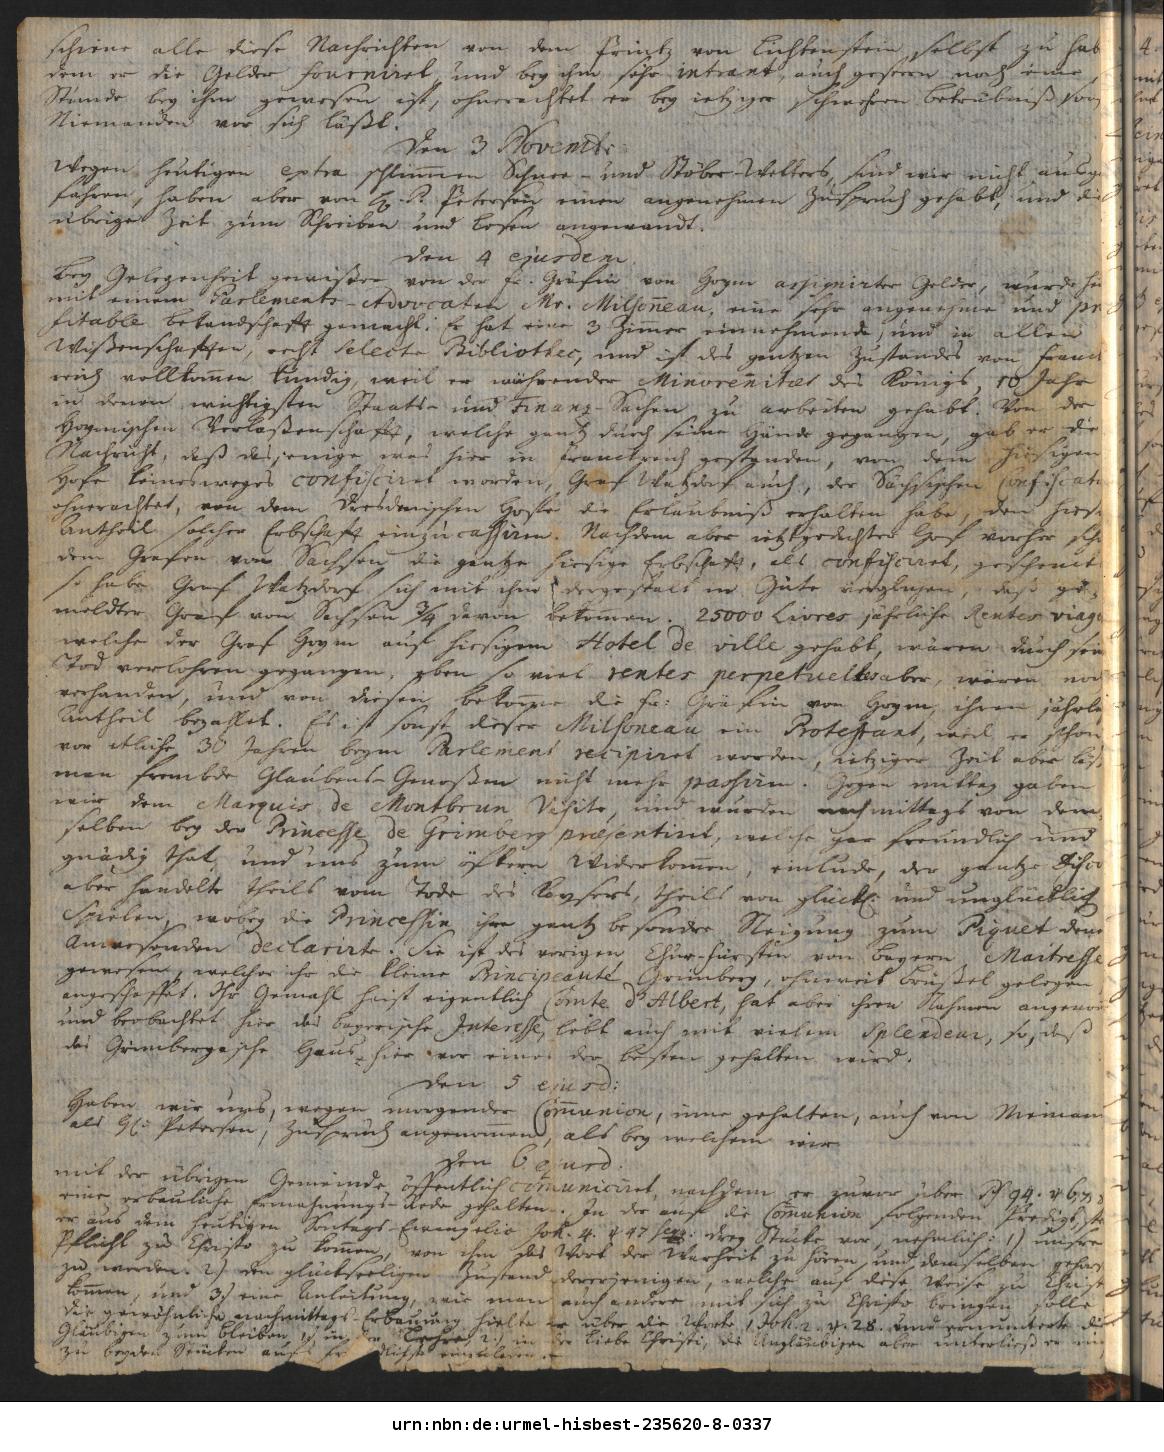 schiene alle diese Nachrichten von dem Printz von Lichtenstein selbst zu hab
dem er die Gelder fourniret, und bey ihm sehr intrant, auch gestern noch eine
Stunde bey ihm gewesen ist, ohnerachtet er bey ietziger schwehren betrübniß sonst
Niemanden vor sich läßt.
Den 3 Novembr:
Wegen heutigen extra schlimmen Schnee- und Stöber-Wetters, sind wir nicht ausge
fahren, haben aber von H. P. Petersen einen angenehmen Zuspruch gehabt, und die
übrige Zeit zum Schreiben und Lesen angewandt.
Den 4 ejusdem
Bey Gelegenheit gewißer von der Fr. Gräfin von Hoym assignirter Gelder, wurde hie
mit einem Parlements-Advocaten Mr. Milsoneau, eine sehr angenehme und pro
fitable bekandschafft gemacht. Er hat eine 3 Zimer einnehmende, und in allen
Wißenschafften, recht selecte Bibliothec, und ist des gantzen Zustandes von Franck
reich vollkomen kundig, weil er währender Minorennitæt des Königs, 10 Jahr
in denen wichtigsten Staats- und Finanz-Sachen zu arbeiten gehabt. Von der
Hoymischen Verlaßenschafft, welche gantz durch seine Hände gegangen, gab er die
Nachricht, daß dasjenige was hier in Franckreich gestanden, von dem hiesigen
Hofe keinesweges confisciret worden, Graf Watzdorf auch, der Sächsischen Confiscati
ohnerachtet, von dem Dresdenischen Hoffe die Erlaubniß erhalten habe, den hiesi
Antheil solcher Erbschafft einzucassiren. Nachdem aber ietztgedachter Hof vorher scho
dem Grafen von Sachsen die gantze hiesige Erbschafft, als confisciret, geschenckt
so habe Graf Watzdorf sich mit ihm dergestalt in Güte verglichen, daß ge
meldter Graf von Sachsen 3/4 davon bekomen. 25000 Livres jährliche Rentes viage
welche der Graf Hoym auf hiesigem Hotel de ville gehabt, wären durch sein
Tod verlohren gegangen, eben so viel rentes perpetuelles aber, wären noch
vorhanden, und von diesen bekome die Fr: Gräfin von Hoym, ihren jährli
Antheil bezahlet. Es ist sonst dieser Milsoneau ein Protestant, weil er schon
vor etliche 30 Jahren beym Parlement recipiret worden, ietziger Zeit aber läß
man frembde Glaubens-Genoßen nicht mehr passiren. Gegen mittag gaben
wir dem Marquis de Montbrun Visite, und wurden nachmittags von dem
selben bey der Princesse de Grimberg præsentiret, welche gar freundlich und
gnädig that, und uns zum öftern Widerkomen, einlude, der gantze Discou
aber handelte theils vom Tode des Kaysers, theils von glückl. und unglücklich
Spielen, wobey die Princessin ihre gantz besondre Neigung zum Piquet denen
Anwesenden declarirte. Sie ist des vorigen Chur-Fürsten von Bayern, Maitresse
gewesen, welcher ihr die kleine Principeauté Grimberg, ohnweit Brüßel gelegen
angeschaffet. Ihr Gemahl heist eigentlich Comte d'Albert, hat aber ihren Nahmen angenom
und beobachtet hier das bayerische Interesse, lebt auch mit vielem Splendeur, so, daß
das Grimbergische Haus hier vor eines der besten gehalten wird.
Den 5 ejusd:
Haben wir uns, wegen morgender Comunion, inne gehalten, auch von Nieman
als H. Petersen, Zuspruch angenommen, als bey welchem wir
Den 6 ejusd.
mit der übrigen Gemeinde öffentlich comuniciret, nachdem er zuvor über Ps. 94. v. 6,7,8
eine erbauliche Ermahnungs-Rede gehalten. In der auf die Comunion folgenden Predigt, ste
er aus dem heutigen Sontags-Evangelio Joh. 4. v 47 seqq: drey Stücke vor, nehmlich: 1) unsre
Pflicht zu Christo zu komen, von ihm das Wort der Warheit zu hören, und demselben gehor
zu werden. 2) den glückseeligen Zustand dererjenigen, welche auf diese Weise zu Christo
komen, und 3) eine Anleitung, wie man auch andere mit sich zu Christo bringen solle
Die gewöhnliche nachmittags-Erbauung hielte er über die Worte 1 Joh. 2. v. 28. und ermunterte die
Gläubigen zum bleiben 1) in der Lehre 2) in der Liebe Christi, die Ungläubigen aber unterließ er nic
zu beyden Stücken aufs einzuladen.
urn:nbn:de:urmel-hisbest-235620-8-0337